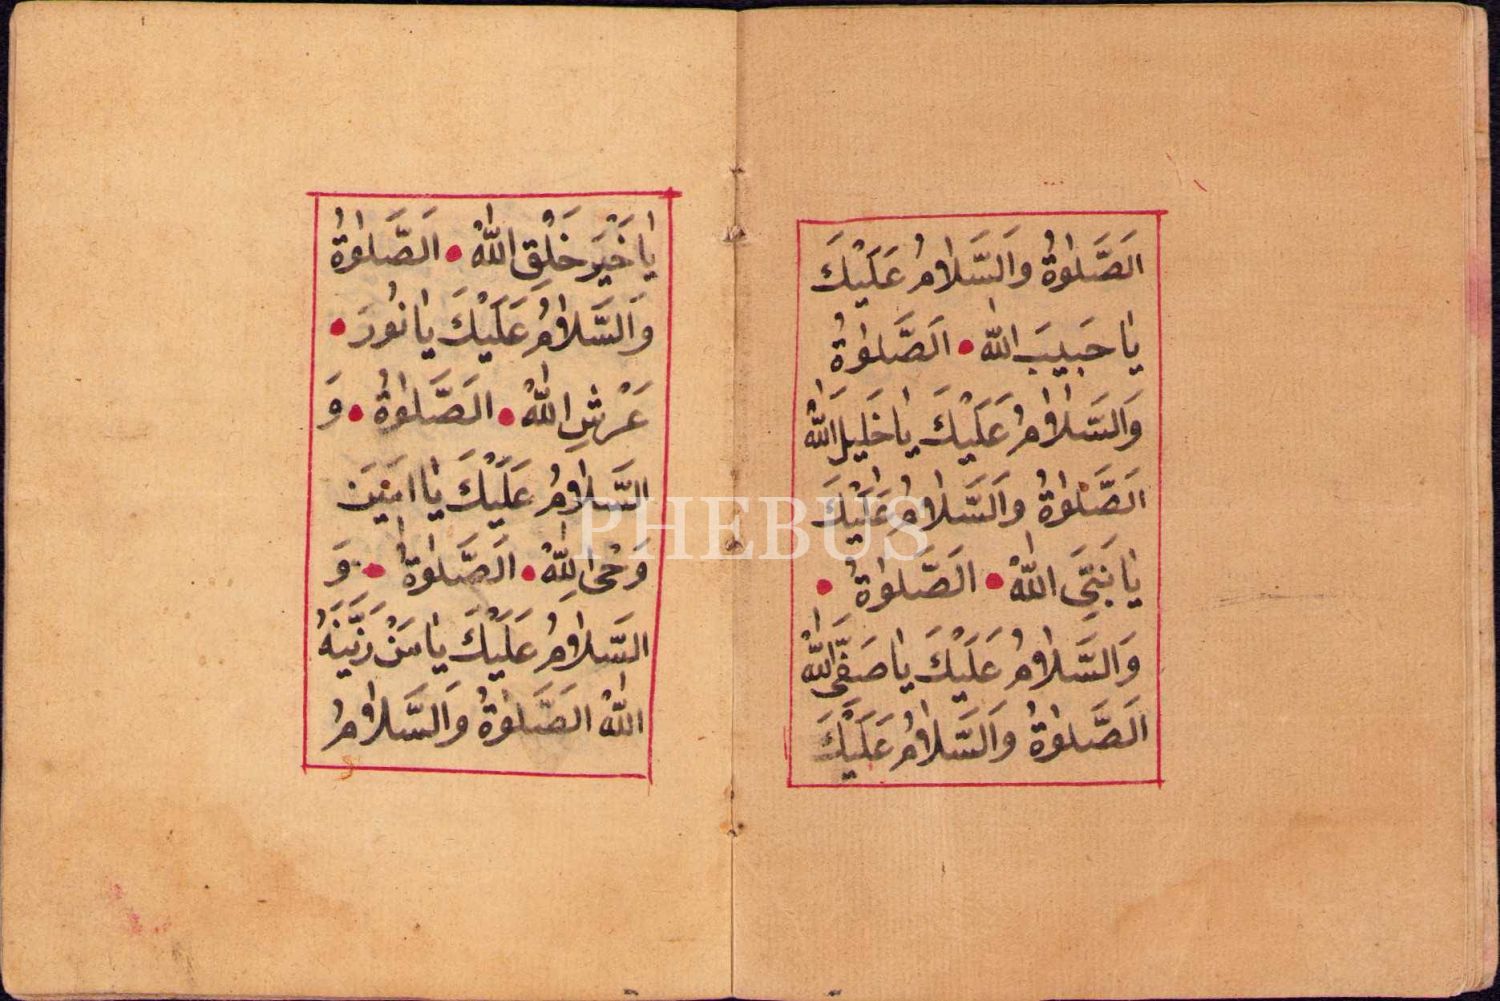 اَلصَّلٰوةُ وَالسَّلَامُ عَلَيْكَ
يَا حَبِيبَ اللّٰه • اَلصَّلٰوةُ
وَالسَّلَامُ عَلَيْكَ يَا خَلِيلَ اللّٰهُ
اَلصَّلٰوةُ وَالسَّلَامُ عَلَيْكَ
يَا نَبِيَّ اللّٰهُ • اَلصَّلٰوةُ •
وَالسَّلَامُ عَلَيْكَ يَا صَفِيَّ اللّٰهُ
اَلصَّلٰوةُ وَالسَّلَامُ عَلَيْكَ
يَا خَيْرَ خَلْقِ اللّٰهُ • اَلصَّلٰوةُ
وَالسَّلَامُ عَلَيْكَ يَا نُورَ •
عَرْشِ اللّٰهُ • اَلصَّلٰوةُ • وَ
السَّلَامُ عَلَيْكَ يَا اَمِينَ
وَحْىِ اللّٰهُ • اَلصَّلٰوةُ • وَ
السَّلَامُ عَلَيْكَ يَا مَنْ زَيَّنَهُ
اللّٰهُ اَلصَّلٰوةُ وَالسَّلَامُ
PHEBUS